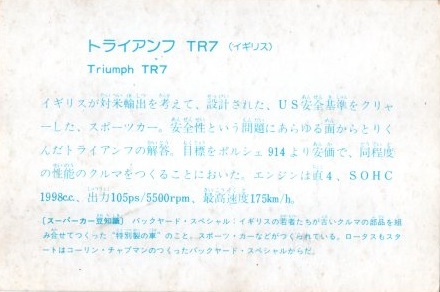 トライアンフ TR7 (イギリス)
Triumph TR7
イギリスが対米輸出を考えて、設計された、US安全基準をクリヤ
ーした、スポーツカー。安全性という問題にあらゆる面からとりく
んだトライアンフの解答。目標をポルシェ914より安価で、同程度
の性能のクルマをつくることにおいた。エンジンは直4、SOHC
1998cc、出力105ps/5500rpm、最高速度175km/h。
[スーパーカー豆知識] バックヤード・スペシャル：イギリスの若者たちが古いクルマの部品を組
み合せてつくった“特別製の車”のこと。スポーツ・カーなどがつくられている。ロータスもスタ
ートはコーリン・チャプマンのつくったバックヤード・スペシャルからだ。